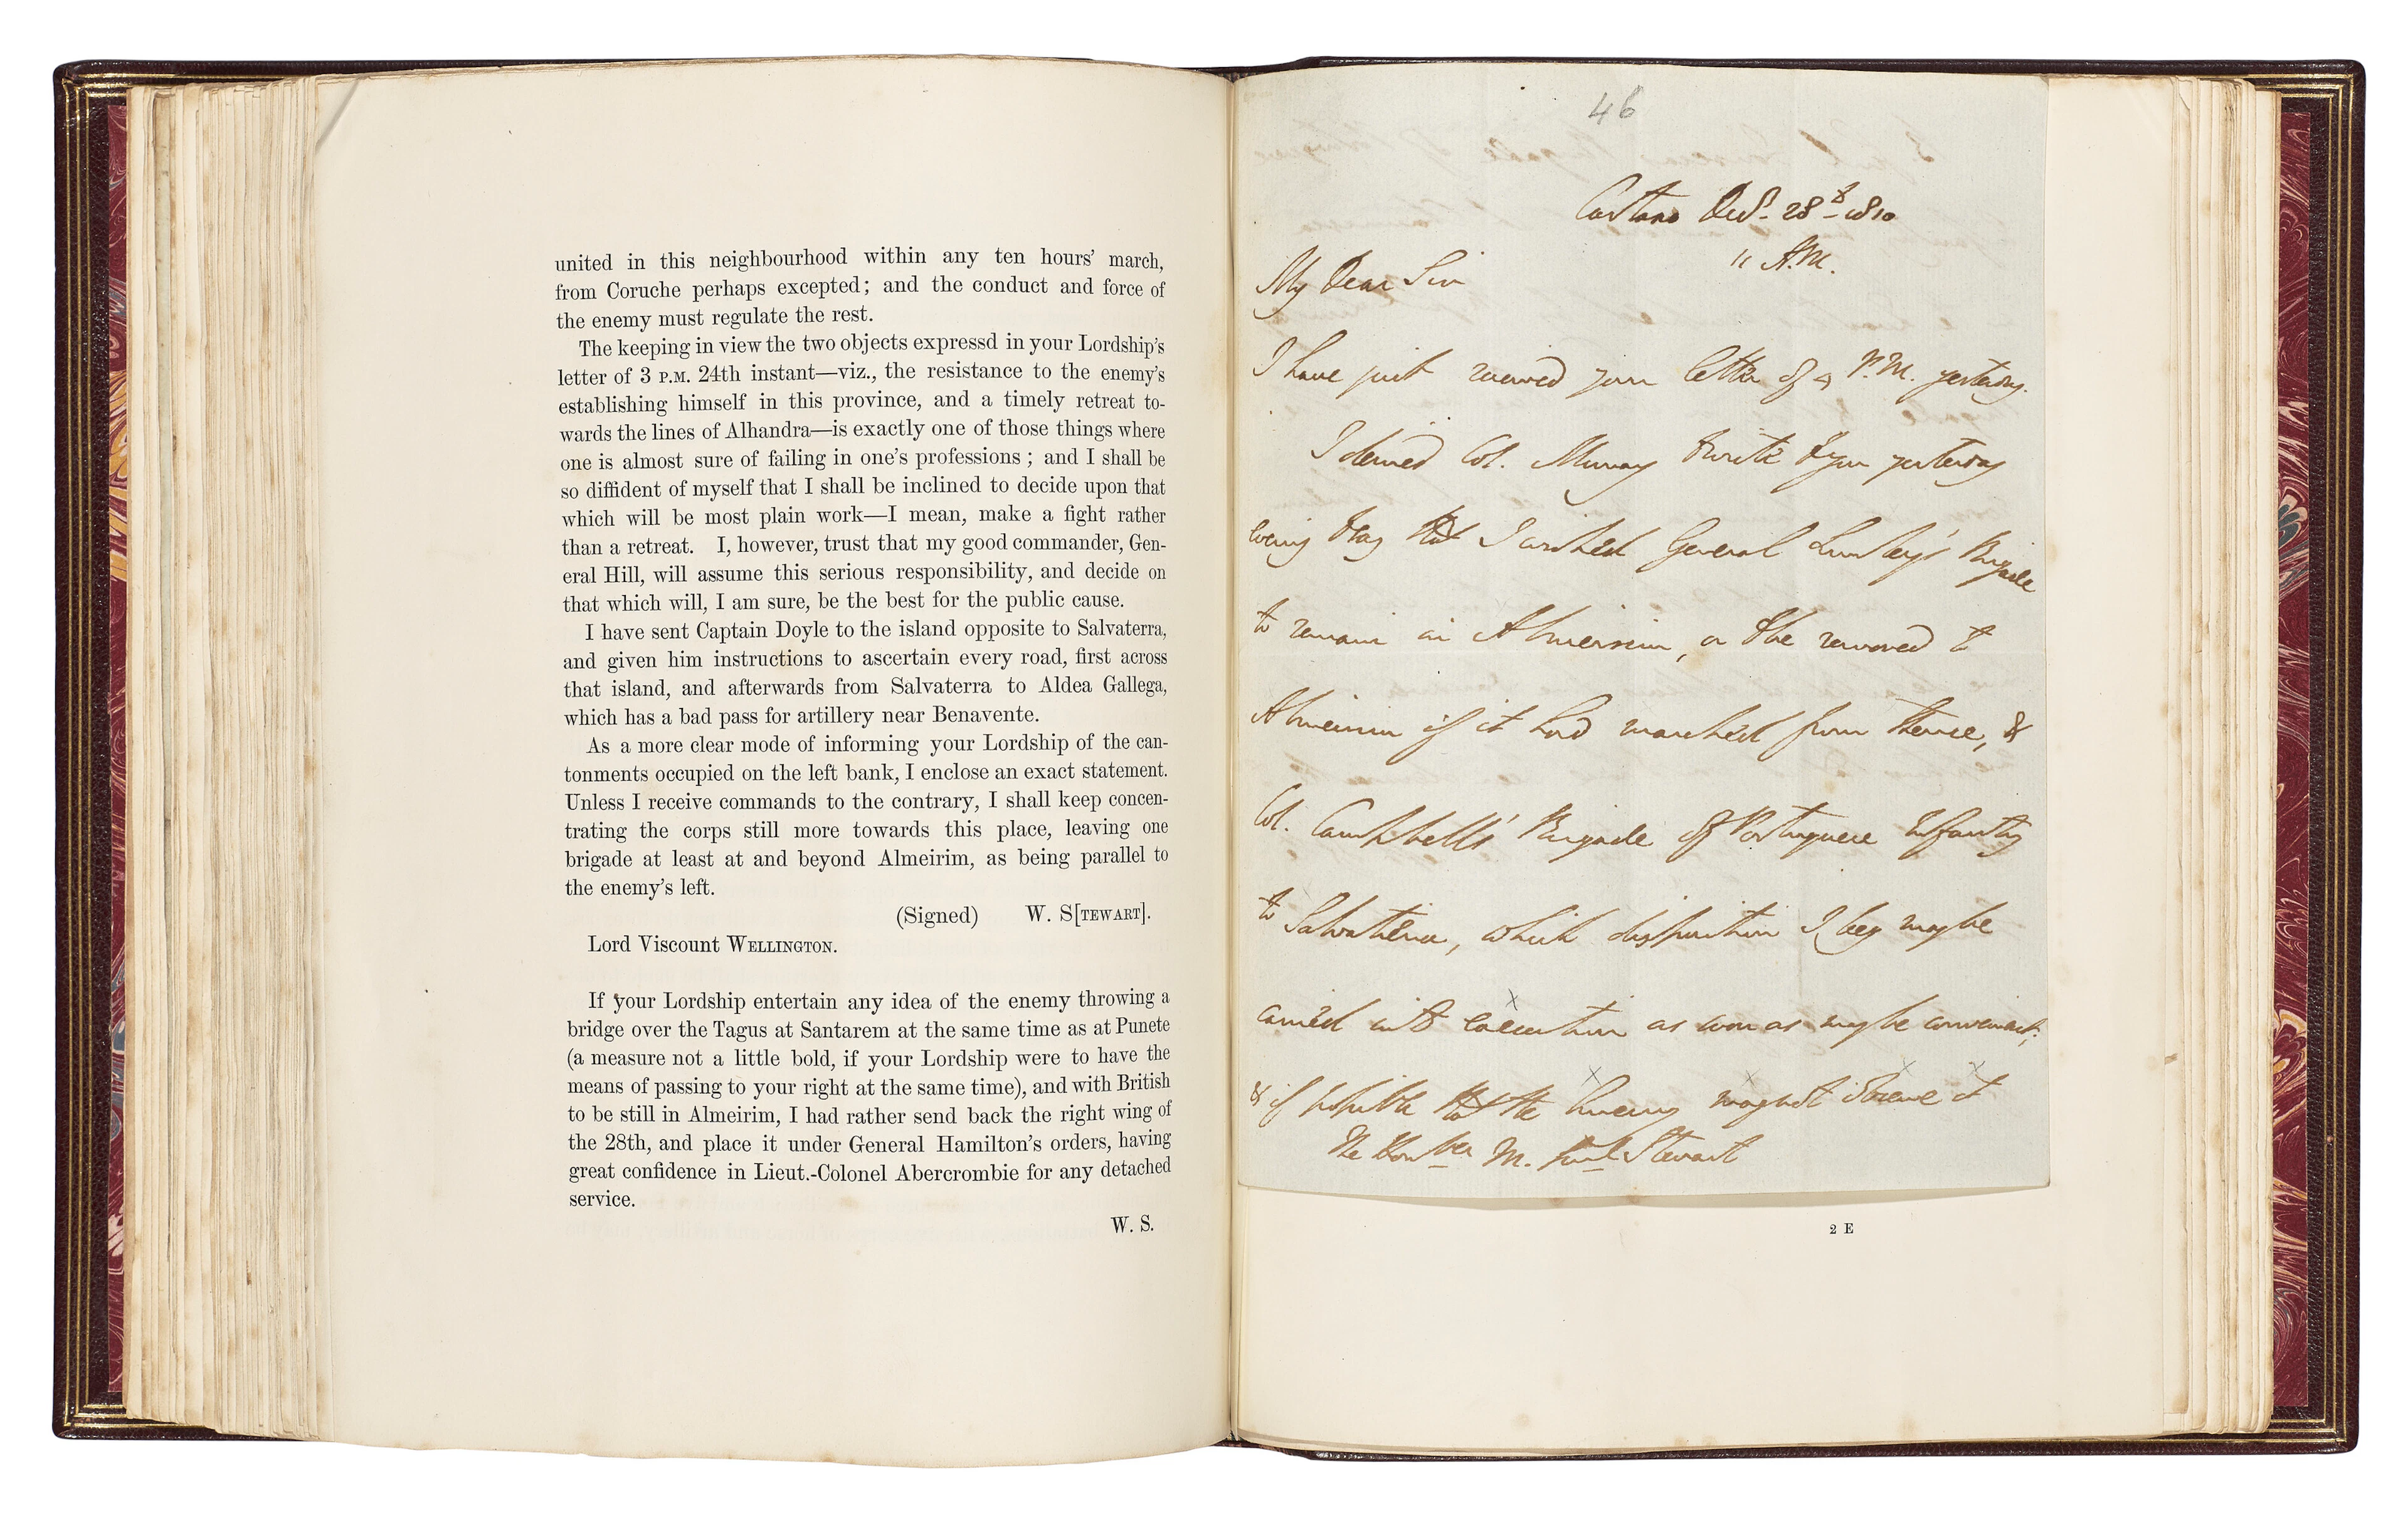 united in this neighbourhood within any ten hours' march,
from Coruche perhaps excepted; and the conduct and force of
the enemy must regulate the rest.
The keeping in view the two objects expressd in your Lordship's
letter of 3 P.M. 24th instant—viz., the resistance to the enemy's
establishing himself in this province, and a timely retreat to-
wards the lines of Alhandra—is exactly one of those things where
one is almost sure of failing in one's professions; and I shall be
so diffident of myself that I shall be inclined to decide upon that
which will be most plain work—I mean, make a fight rather
than a retreat. I, however, trust that my good commander, Gen-
eral Hill, will assume this serious responsibility, and decide on
that which will, I am sure, be the best for the public cause.
I have sent Captain Doyle to the island opposite to Salvaterra,
and given him instructions to ascertain every road, first across
that island, and afterwards from Salvaterra to Aldea Gallega,
which has a bad pass for artillery near Benavente.
As a more clear mode of informing your Lordship of the can-
tonments occupied on the left bank, I enclose an exact statement.
Unless I receive commands to the contrary, I shall keep concen-
trating the corps still more towards this place, leaving one
brigade at least at and beyond Almeirim, as being parallel to
the enemy's left.
(Signed) W. S[TEWART].
Lord Viscount WELLINGTON.
If your Lordship entertain any idea of the enemy throwing a
bridge over the Tagus at Santarem at the same time as at Punete
(a measure not a little bold, if your Lordship were to have the
means of passing to your right at the same time), and with British
to be still in Almeirim, I had rather send back the right wing of
the 28th, and place it under General Hamilton's orders, having
great confidence in Lieut.-Colonel Abercrombie for any detached
service.
W. S.
46
Cartaxo Decr. 28th 1810
11 A.M.
My Dear Sir
I have just received your letter of 4 P.M. yesterday.
I desired Col. Murray to write to you yesterday
evening to say that I wished General Lumley's Brigade
to remain in Almeirim, or to be removed to
Almeirim if it had marched from thence, &
Col. Campbell's Brigade of Portuguese Infantry
to Salvatierra, which disposition I beg may be
carried into execution as soon as may be convenient;
& if possible that the Enemy may not observe it
The Honble M. Genl Stewart
2 E